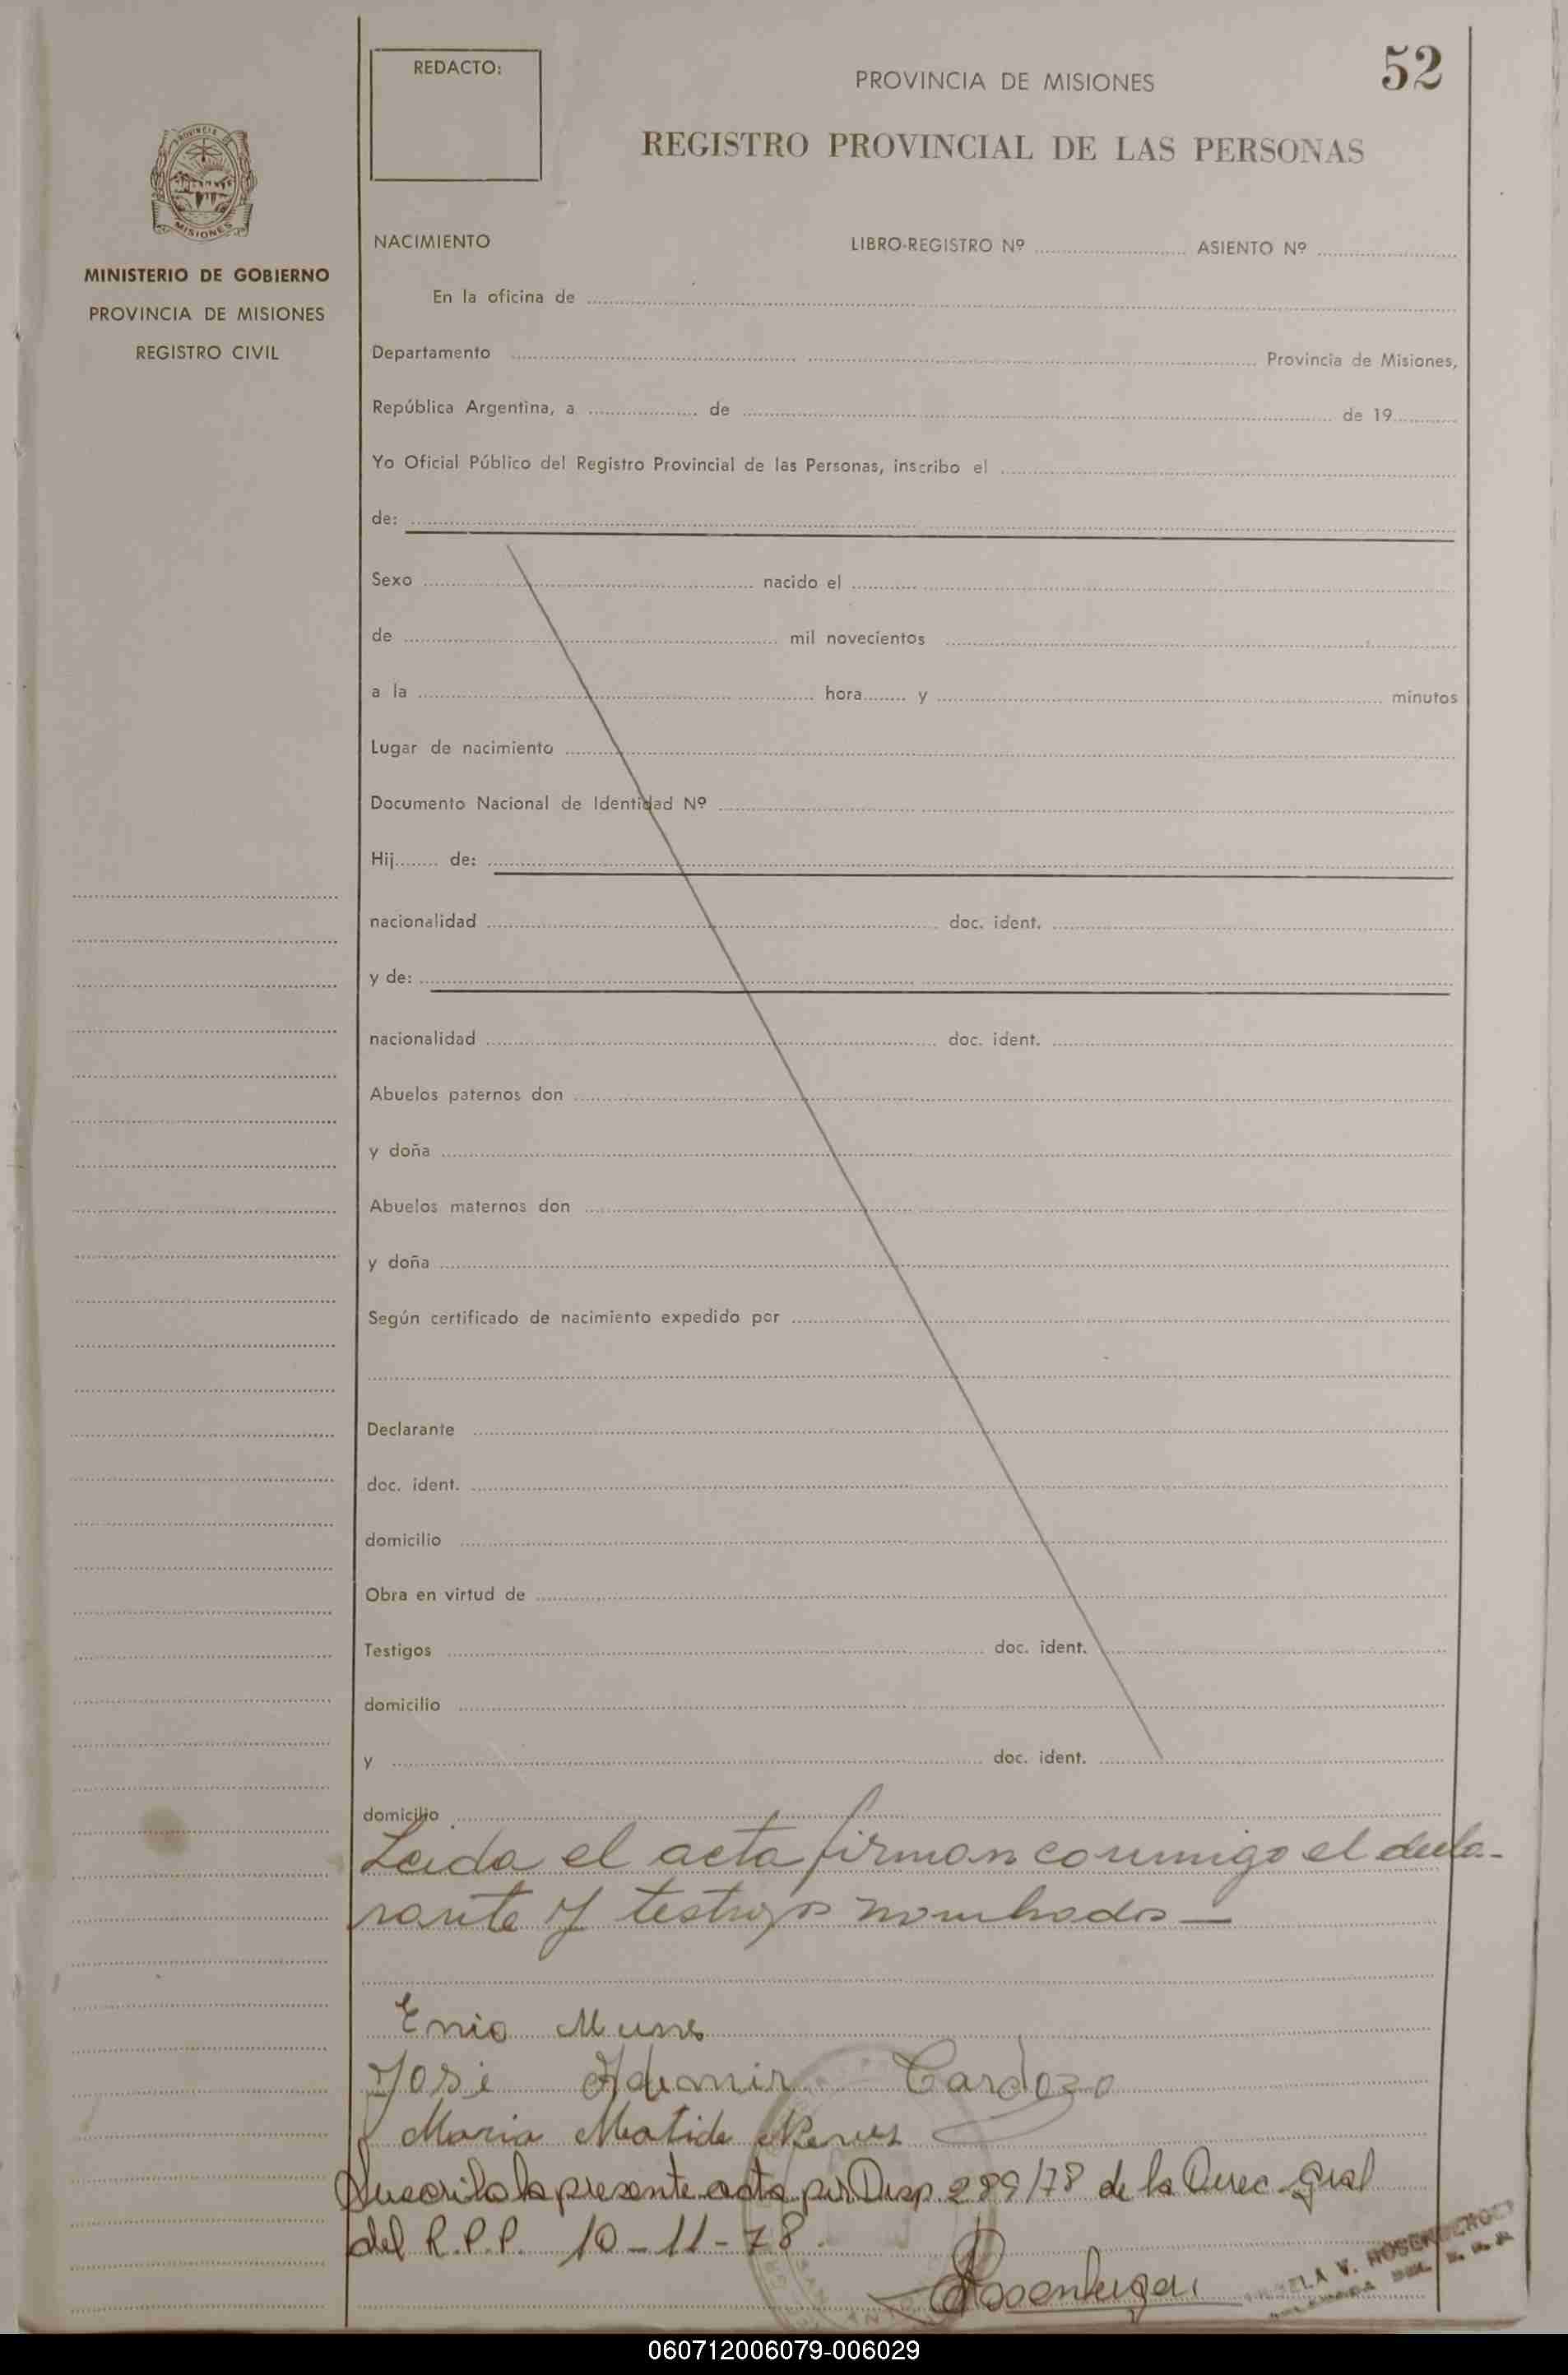 REDACTO:
PROVINCIA DE MISIONES
52
REGISTRO PROVINCIAL DE LAS PERSONAS
PROVINCIA DE
MISIONES
MINISTERIO DE GOBIERNO
PROVINCIA DE MISIONES
REGISTRO CIVIL
NACIMIENTO LIBRO-REGISTRO Nº ASIENTO Nº
En la oficina de
Departamento Provincia de Misiones,
República Argentina, a de de 19
Yo Oficial Público del Registro Provincial de las Personas, inscribo el
de:
Sexo nacido el
de mil novecientos
a la hora y minutos
Lugar de nacimiento
Documento Nacional de Identidad Nº
Hij de:
nacionalidad doc. ident.
y de:
nacionalidad doc. ident.
Abuelos paternos don
y doña
Abuelos maternos don
y doña
Según certificado de nacimiento expedido por
Declarante
doc. ident.
domicilio
Obra en virtud de
Testigos doc. ident.
domicilio
y doc. ident.
domicilio
Leida el acta firman conmigo el decla-
rante y testigos nombados —
Enio
José Ademir Cardozo
Maria Matide
la presente acta por Disp. 289/78 de la Direc. Gral
del R.P.P. 10-11-78.
V. ROSENBERGER
060712006079-006029